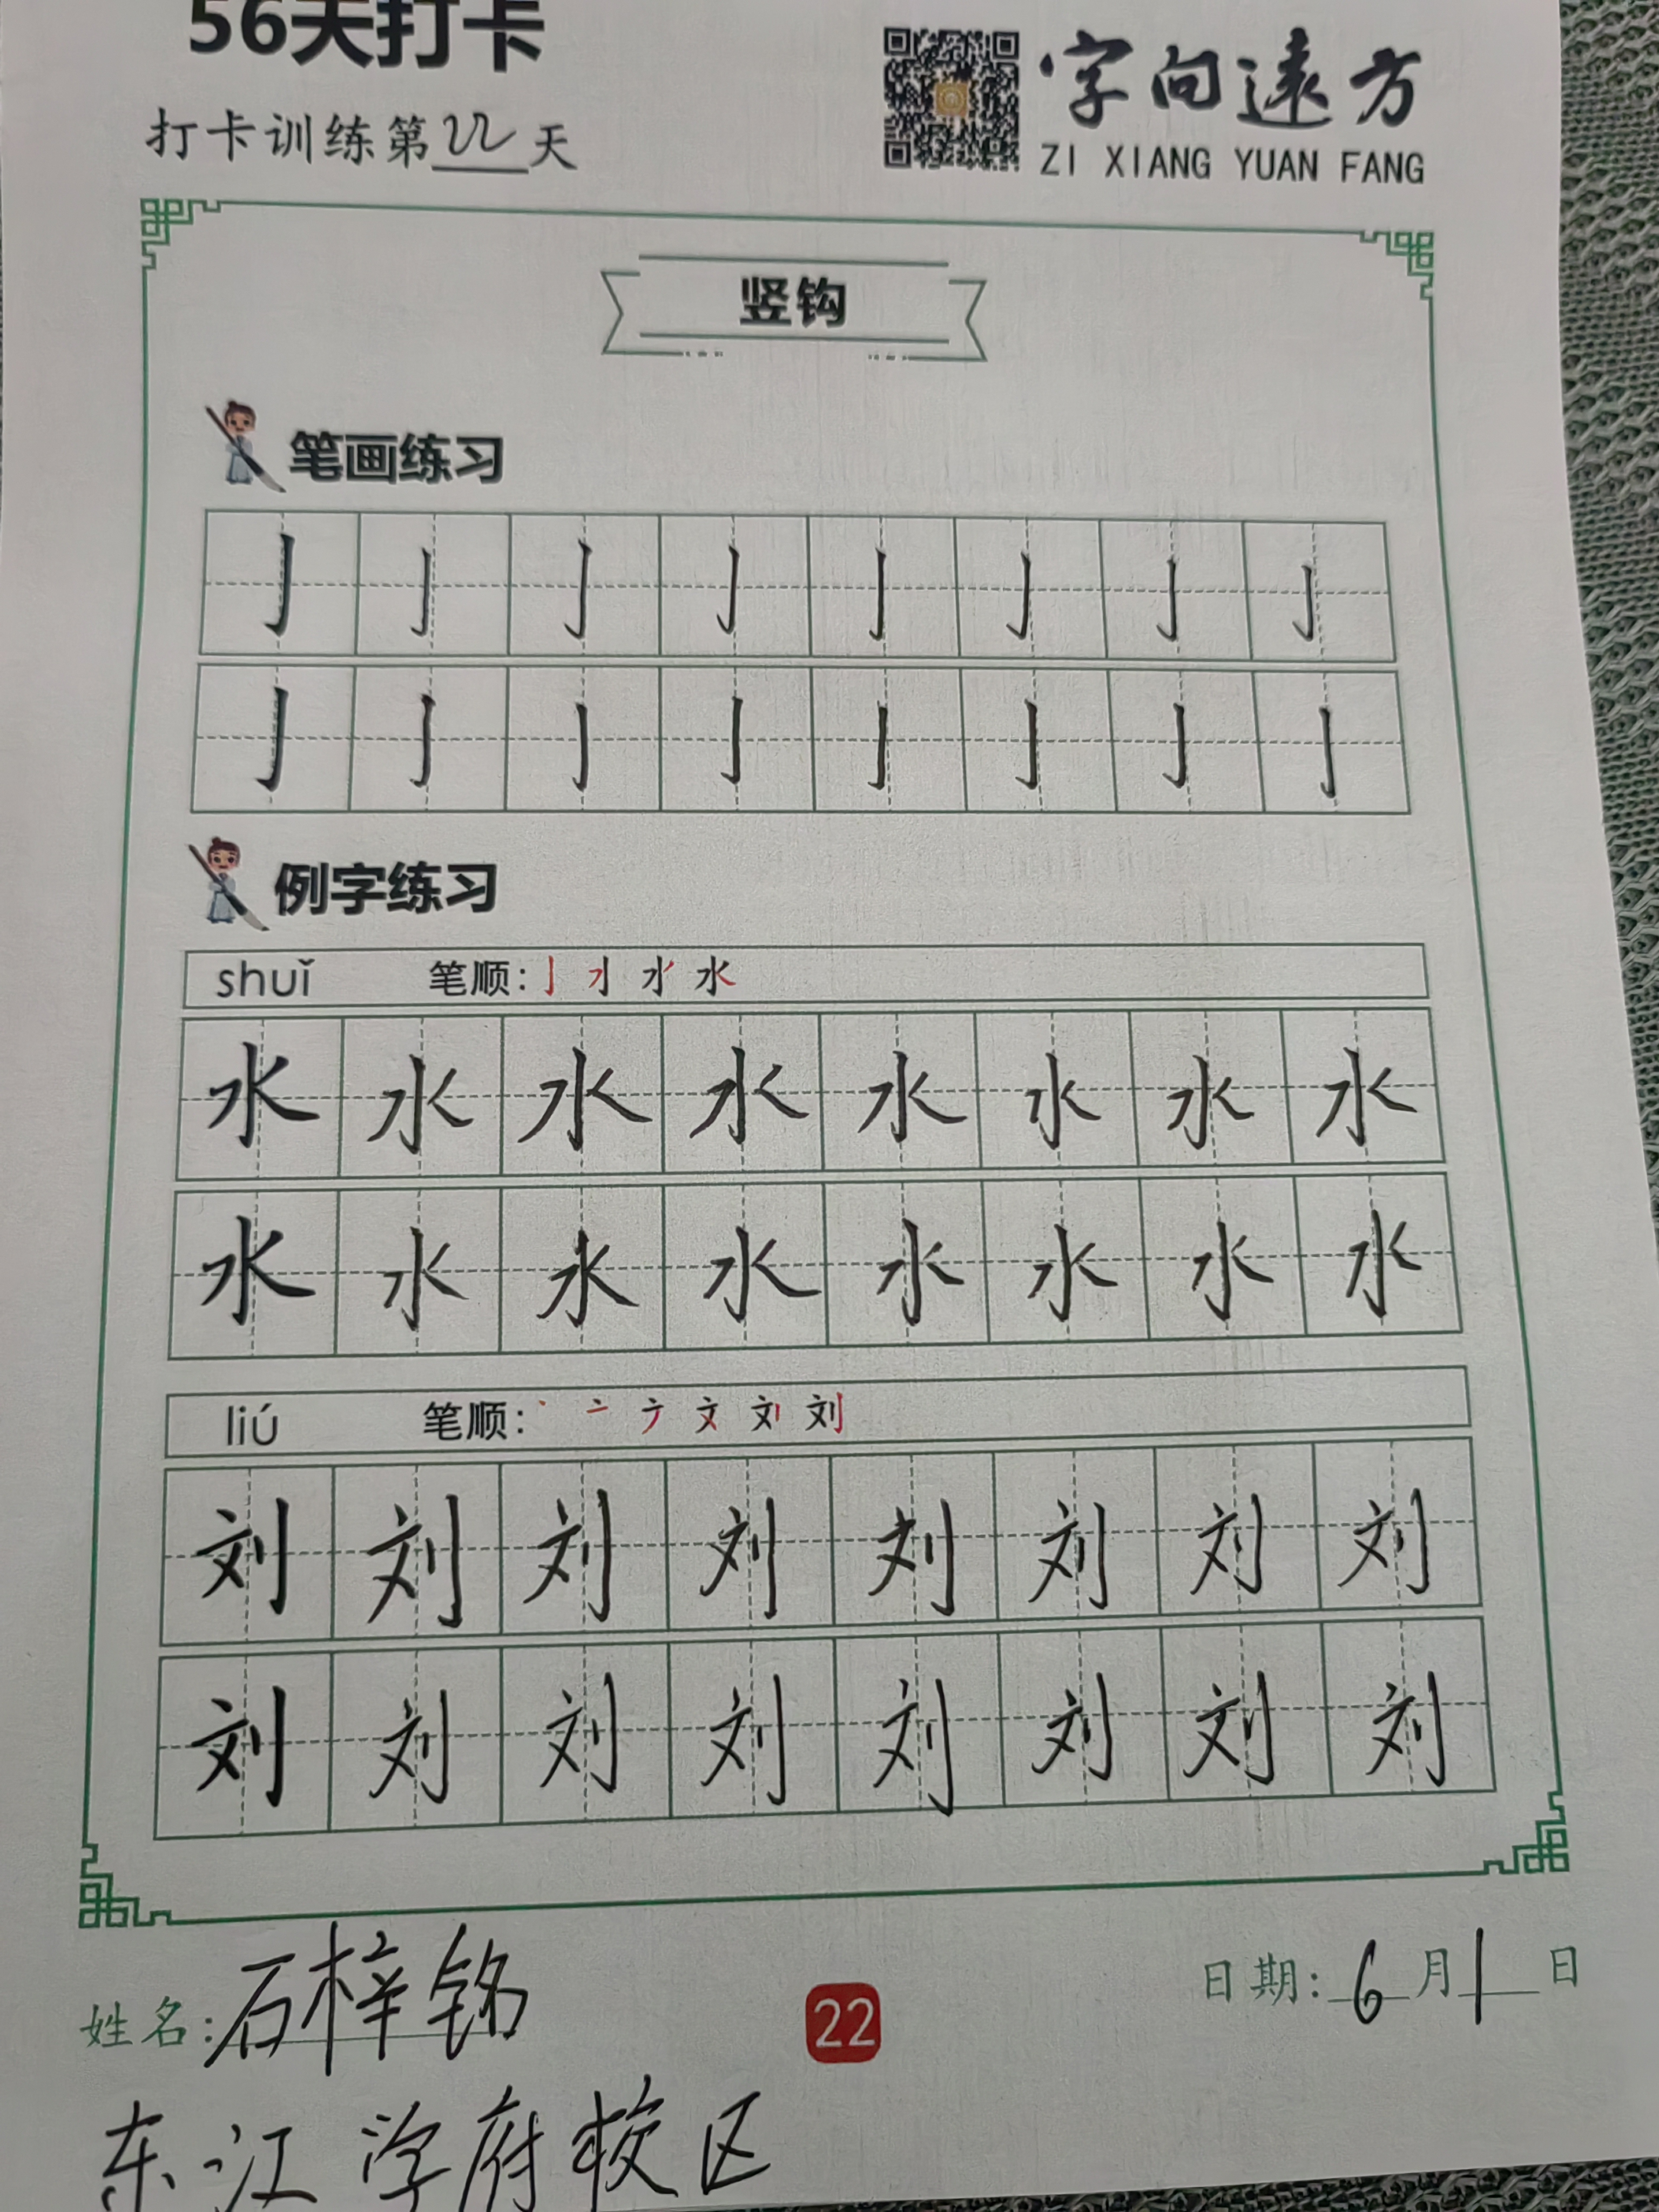 56天打卡
打卡训练第22天
字向遠方
ZI XIANG YUAN FANG
竖钩
笔画练习
亅 亅 亅 亅 亅 亅 亅 亅
亅 亅 亅 亅 亅 亅 亅 亅
例字练习
shuǐ 笔顺: 水
水 水 水 水 水 水 水 水
水 水 水 水 水 水 水 水
liú 笔顺: 刘
刘 刘 刘 刘 刘 刘 刘 刘
刘 刘 刘 刘 刘 刘 刘 刘
姓名: 石梓铭
22
日期: 6月1日
东江学府校区